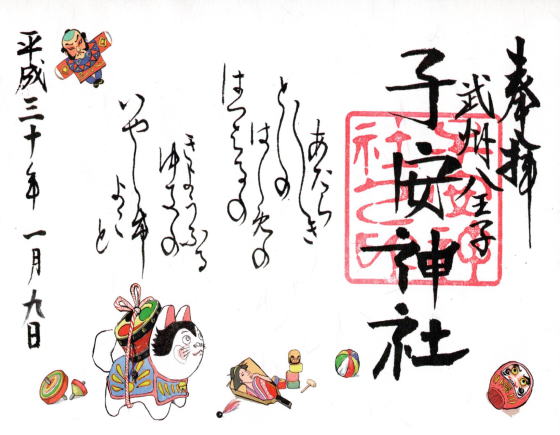 奉拝
武州八王子
子安神社
子安神社之印
あたらしき
としの
はしめの
はつはるの
きょうふる
ゆきの
いやしけ
よこと
平成三十年 一月九日